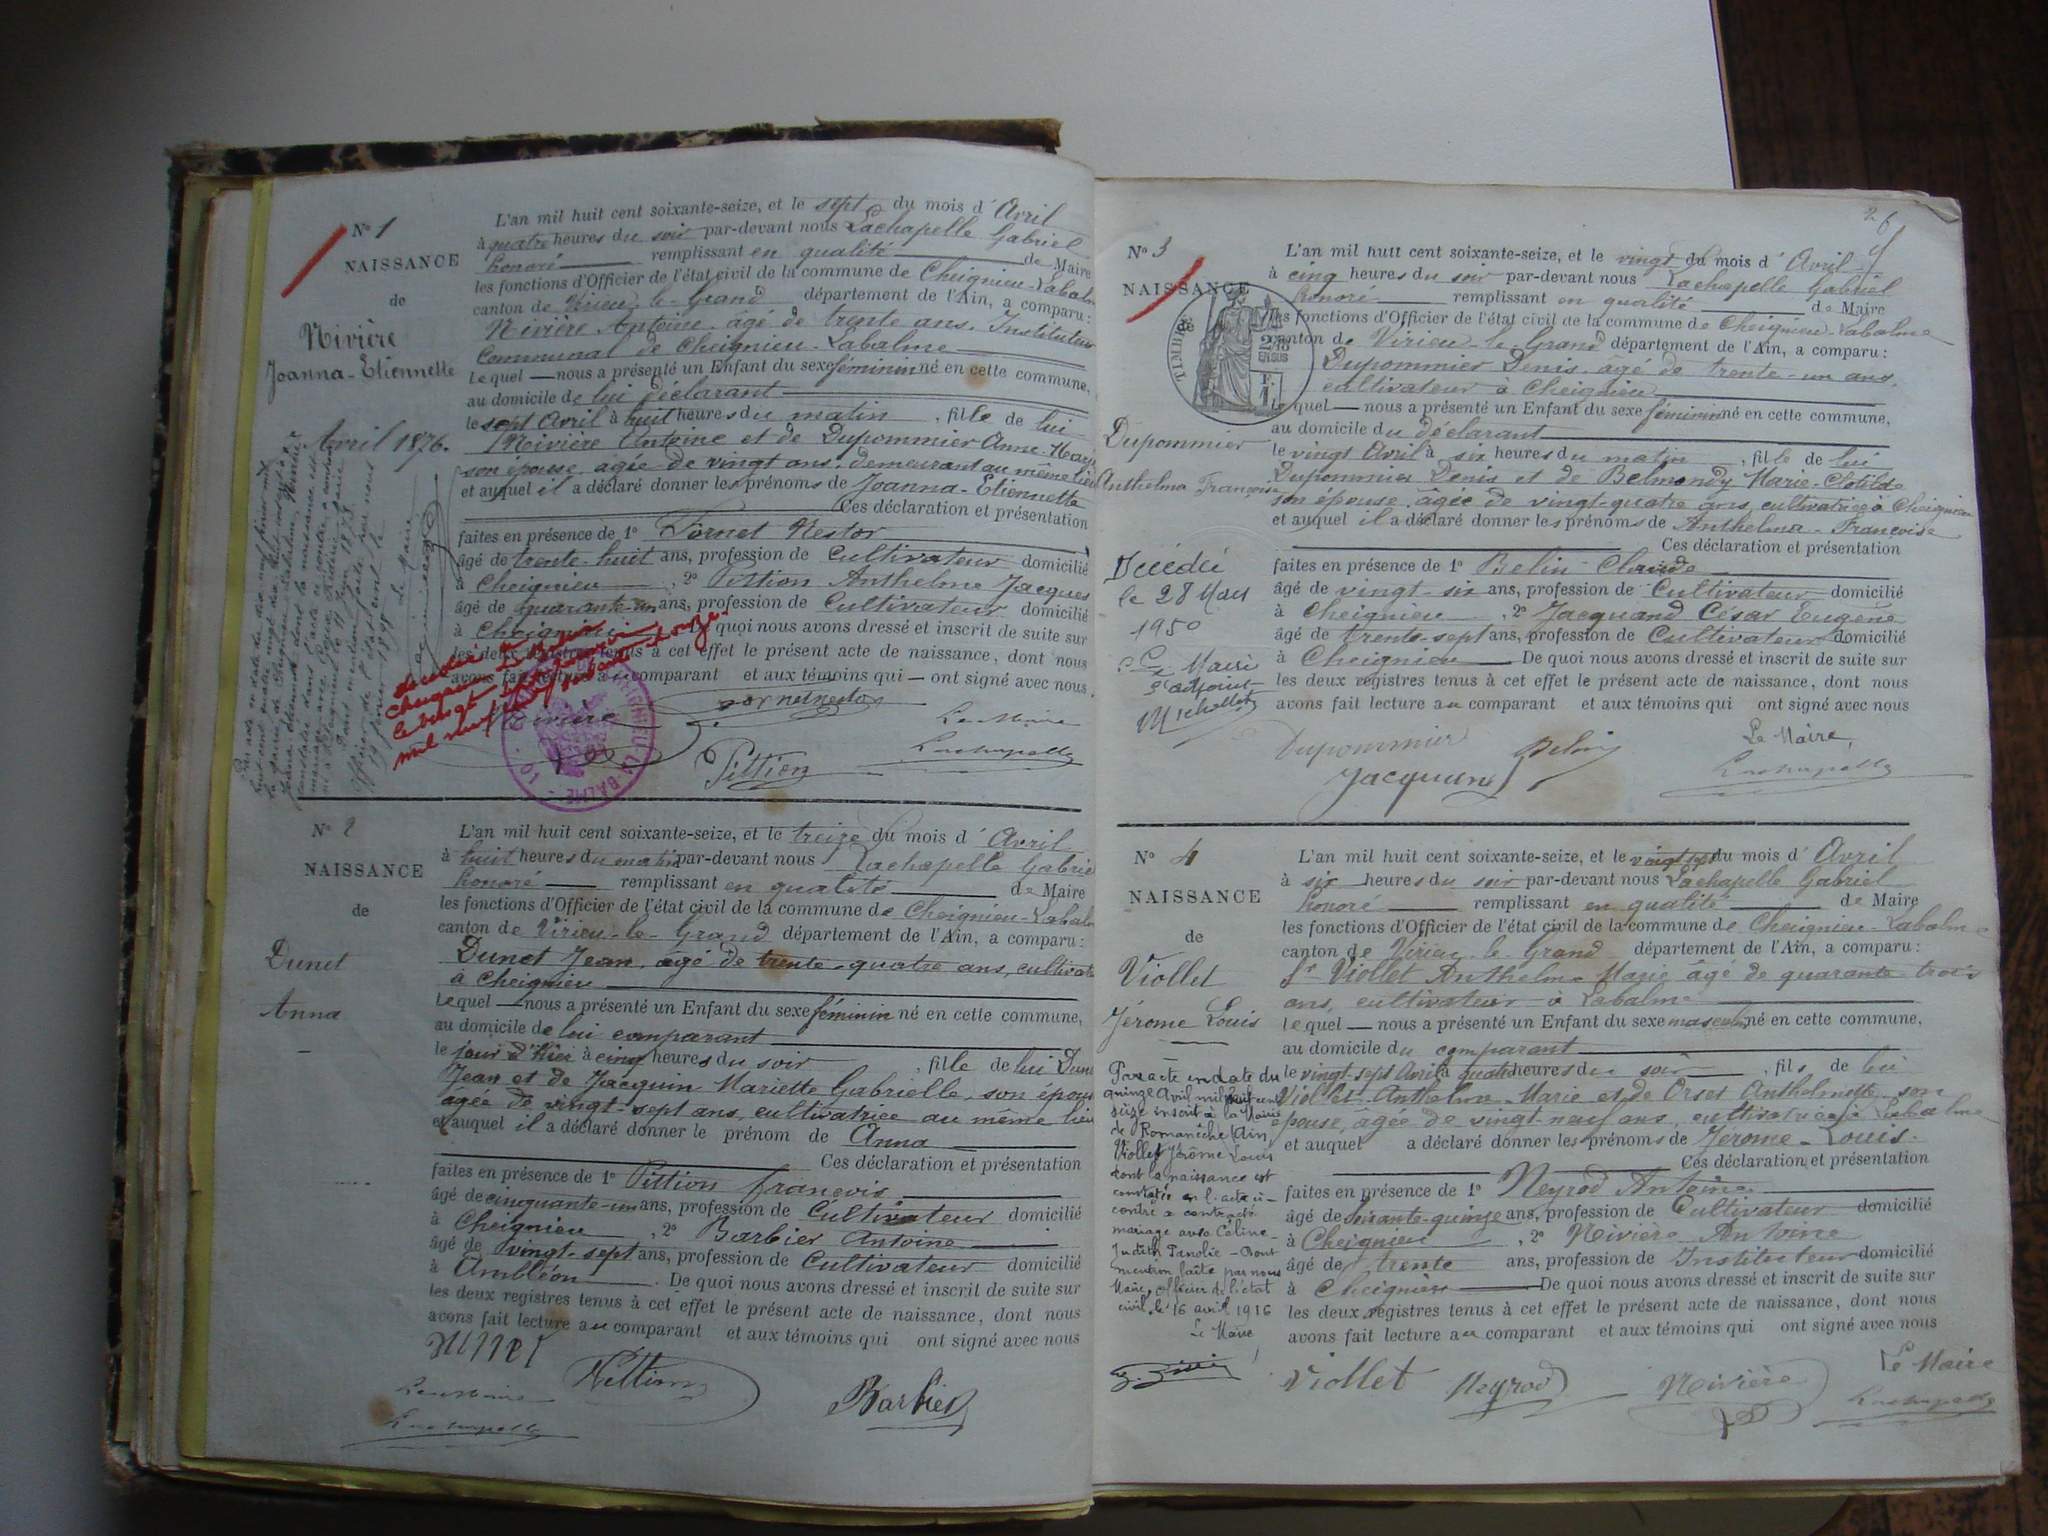 Nº 1
NAISSANCE
de
Nivière
Joanna-Etiennette
Avril 1876.
L'an mil huit cent soixante-seize, et le sept du mois d'Avril
à quatre heures du soir par-devant nous Lachapelle Gabriel
honoré remplissant en qualité de Maire
les fonctions d'Officier de l'état civil de la commune de Cheignieu-Labalme
canton de Virieu-le-Grand département de l'Ain, a comparu:
Nivière Antoine, âgé de trente ans, Instituteur
Communal de Cheignieu-Labalme
Lequel nous a présenté un Enfant du sexe féminin né en cette commune,
au domicile de lui déclarant
le sept Avril à huit heures du matin, fille de lui
Nivière Antoine et de Dupommier Anne-Marie
son épouse, âgée de vingt ans, demeurant au même lieu
et auquel il a déclaré donner les prénoms de Joanna-Etiennette
Ces déclaration et présentation
faites en présence de 1º Fornet Nestor
âgé de trente-huit ans, profession de Cultivateur domicilié
à Cheignieu, 2º Pittion Anthelme Jacques
âgé de quarante-un ans, profession de Cultivateur domicilié
à Cheignieu De quoi nous avons dressé et inscrit de suite sur
les deux registres tenus à cet effet le présent acte de naissance, dont nous
avons fait lecture au comparant et aux témoins qui ont signé avec nous.
Nivière
Fornet Nestor
Pittion
Le Maire
Lachapelle
Nº 2
NAISSANCE
de
Dunet
Anna
L'an mil huit cent soixante-seize, et le treize du mois d'Avril
à huit heures du matin par-devant nous Lachapelle Gabriel
honoré remplissant en qualité de Maire
les fonctions d'Officier de l'état civil de la commune de Cheignieu-Labalme
canton de Virieu-le-Grand département de l'Ain, a comparu:
Dunet Jean, âgé de trente-quatre ans, cultivateur
à Cheignieu
Lequel nous a présenté un Enfant du sexe féminin né en cette commune,
au domicile de lui comparant
le jour d'hier à cinq heures du soir, fille de lui Dunet
Jean et de Jacquin Mariette Gabrielle, son épouse
agée de vingt-sept ans, cultivatrice au même lieu
et auquel il a déclaré donner le prénom de Anna
Ces déclaration et présentation
faites en présence de 1º Pittion françois
âgé de cinquante-un ans, profession de Cultivateur domicilié
à Cheignieu, 2º Barbier Antoine
âgé de vingt-sept ans, profession de Cultivateur domicilié
à Ambléon. De quoi nous avons dressé et inscrit de suite sur
les deux registres tenus à cet effet le présent acte de naissance, dont nous
avons fait lecture au comparant et aux témoins qui ont signé avec nous
Dunet
Pittion
Barbier
Le Maire
Lachapelle
26
Nº 3
NAISSANCE
de
TIMBRE
Dupommier
Anthelma Françoise
Décédée
le 28 Mars
1950
L'an mil huit cent soixante-seize, et le vingt du mois d'Avril
à cinq heures du soir par-devant nous Lachapelle Gabriel
honoré remplissant en qualité de Maire
les fonctions d'Officier de l'état civil de la commune de Cheignieu-Labalme
canton de Virieu-le-Grand département de l'Ain, a comparu:
Dupommier Denis, âgé de trente-un ans,
cultivateur à Cheignieu
Lequel nous a présenté un Enfant du sexe féminin né en cette commune,
au domicile du déclarant
le vingt Avril à six heures du matin, fille de lui
Dupommier Denis et de Belmondy Marie-Clotilde
son épouse, âgée de vingt-quatre ans, cultivatrice à Cheignieu
et auquel il a déclaré donner les prénoms de Anthelma-Françoise
Ces déclaration et présentation
faites en présence de 1º Belin Claude
âgé de vingt-six ans, profession de Cultivateur domicilié
à Cheignieu, 2º Jacquand César Eugène
âgé de trente-sept ans, profession de Cultivateur domicilié
à Cheignieu De quoi nous avons dressé et inscrit de suite sur
les deux registres tenus à cet effet le présent acte de naissance, dont nous
avons fait lecture au comparant et aux témoins qui ont signé avec nous
Dupommier
Belin
Jacquand
Le Maire,
Lachapelle
Nº 4
NAISSANCE
de
Viollet
Jérome Louis
Par acte en date du
quinze Avril mil neuf cent
seize inscrit à la Mairie
de Romanèche (Ain)
Viollet Jérôme Louis
dont la naissance est
constatée en l'acte ci-
contre a contracté
mariage avec Céline-
Judith Panolie - Dont
mention faite par nous
Maire, officier de l'état
civil, le 16 avril 1916
Le Maire
L'an mil huit cent soixante-seize, et le vingt-sept du mois d'Avril
à six heures du soir par-devant nous Lachapelle Gabriel
honoré remplissant en qualité de Maire
les fonctions d'Officier de l'état civil de la commune de Cheignieu-Labalme
canton de Virieu-le-Grand département de l'Ain, a comparu:
Sr Viollet Anthelme Marie âgé de quarante-trois
ans, cultivateur à Labalme
Lequel nous a présenté un Enfant du sexe masculin né en cette commune,
au domicile du comparant
le vingt-sept Avril à quatre heures du soir, fils de lui
Viollet Anthelme Marie et de Orset Anthelmette son
épouse, âgée de vingt-neuf ans, cultivatrice à Labalme
et auquel a déclaré donner les prénoms de Jérome-Louis.
Ces déclaration et présentation
faites en présence de 1º Neyrod Antoine
âgé de soixante-quinze ans, profession de Cultivateur domicilié
à Cheignieu, 2º Nivière Antoine
âgé de trente ans, profession de Instituteur domicilié
à Cheignieu De quoi nous avons dressé et inscrit de suite sur
les deux registres tenus à cet effet le présent acte de naissance, dont nous
avons fait lecture au comparant et aux témoins qui ont signé avec nous
Viollet
Neyrod
Nivière
Le Maire
Lachapelle